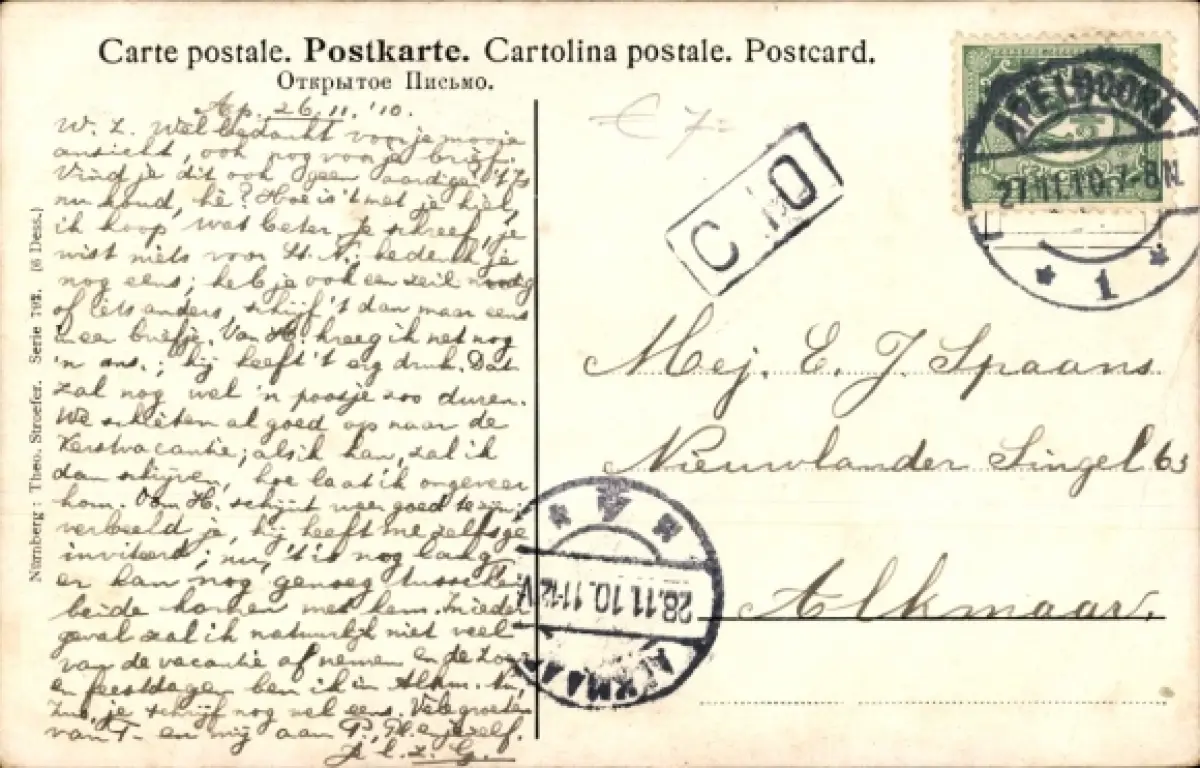 Carte postale. Postkarte. Cartolina postale. Postcard.
Открытое Письмо.
Ap. 26.11.'10.
W. Z. Wel bedankt voor je mooie
ansicht, ook nog voor je brief.
Vind je dit ook geen aardige? 't Is
nu koud, hè? Hoe is 't met je hiel,
ik hoop wat beter. Je schreef, je
wist niets voor St. N.; bedenk je
nog eens; heb je ook een zeil noodig
of iets anders, schrijf 't dan maar eens
in een briefje. Van H. kreeg ik net nog
'n ans.; hij heeft 't erg druk. Dat
zal nog wel 'n poosje zoo duren.
We schieten al goed op naar de
Kerstvacantie; als ik kan, zal ik
dan schrijven, hoe laat ik ongeveer
kom. Oom H. schijnt weer goed te zijn;
verbeeld je, hij heeft me zelfs ge
inviteerd; nu, 't is nog lang,
er kan nog genoeg tusschen
beide komen met hem. In ieder
geval zal ik natuurlijk niet veel
van de vacantie af nemen en de Zon-
en feestdagen ben ik in Alkm. Nu,
Zus, je schrijf nog wel eens. Vele groeten
van T. en mij aan P., H. en jezelf.
Je l. z. G.
Nürnberg: Theo. Stroefer. Serie 798. (6 Dess.)
€ 7=
C O
APELDOORN
27.11.10.7-8N.
1
½
CENT
Mej. E. J. Spaans
Nieuwlander Singel 63
Alkmaar.
ALKMAAR
28.11.10.11-12V